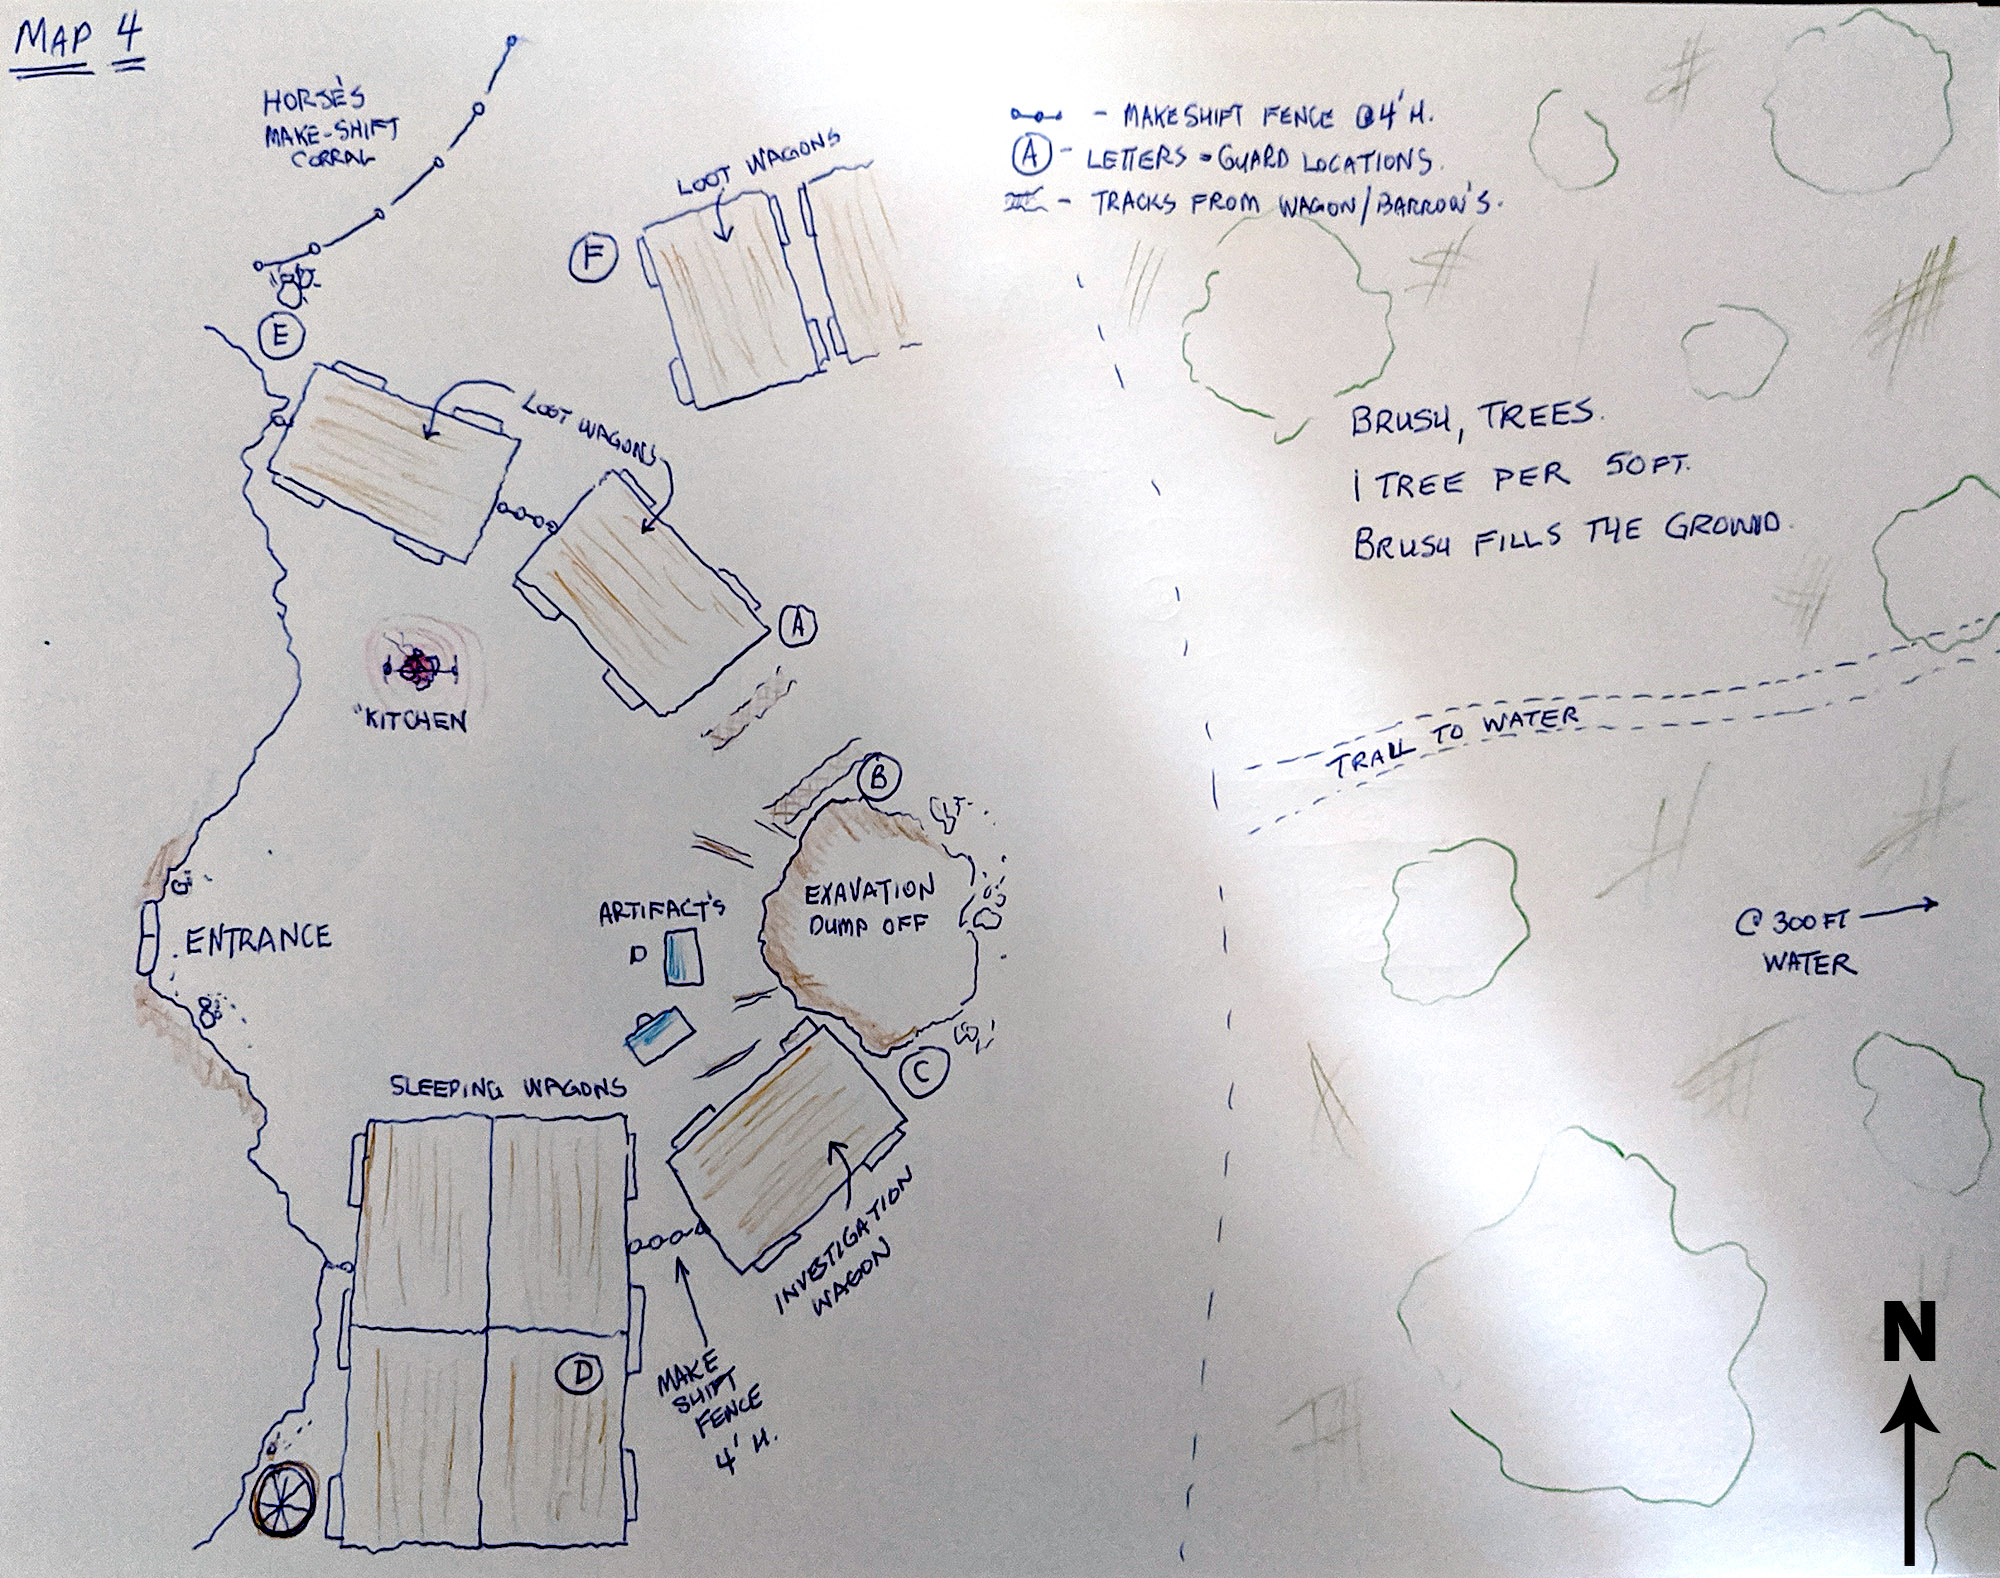 MAP 4
HORSE'S
MAKE-SHIFT
CORRAL
LOOT WAGONS
- MAKESHIFT FENCE @ 4' H.
A - LETTERS = GUARD LOCATIONS.
- TRACKS FROM WAGON/BARROW'S.
F
E
LOOT WAGONS
BRUSH, TREES.
1 TREE PER 50FT.
BRUSH FILLS THE GROUND.
A
"KITCHEN
TRAIL TO WATER
B
EXAVATION
DUMP OFF
ARTIFACT'S
D
ENTRANCE
@ 300FT
WATER
C
SLEEPING WAGONS
INVESTIGATION
WAGON
D
MAKE
SHIFT
FENCE
4' H.
N